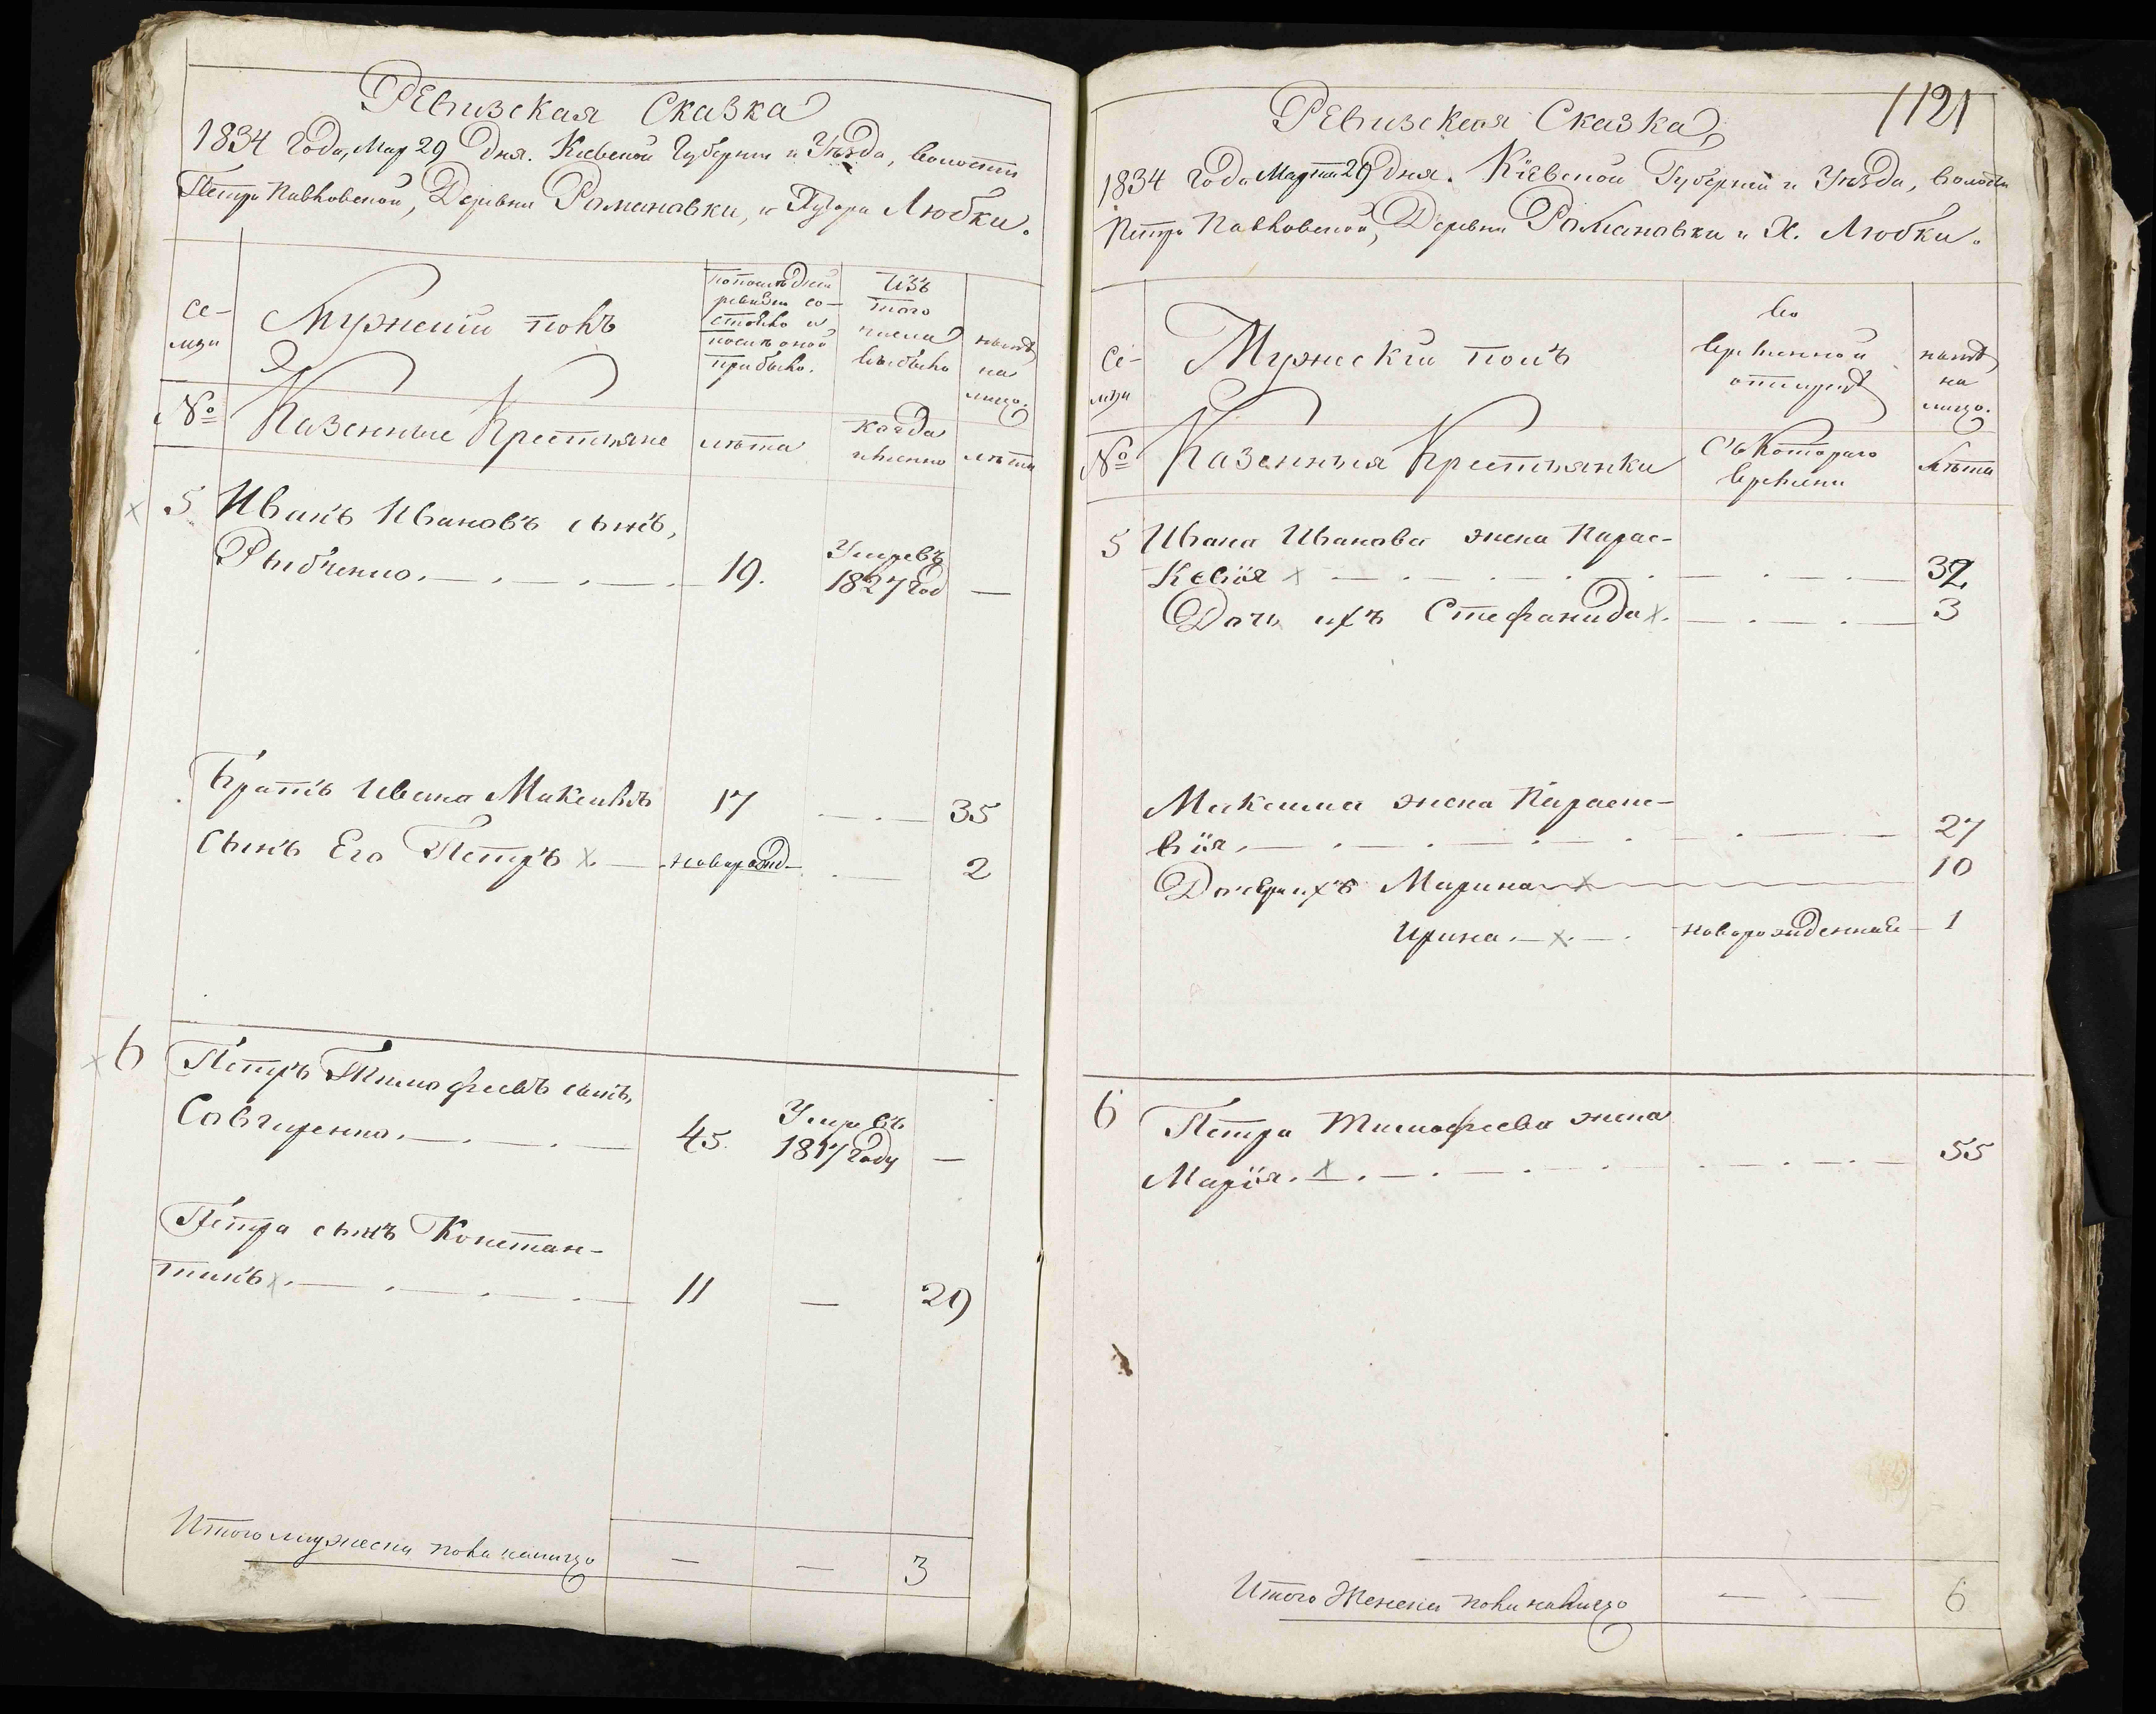 Ревизская Сказка
1834 Года, Мар 29 Дня. Киевской Губернии и Уѣзда, волости
Петро Павловской, Деревни Романовки, и Хутора Любки.
Се-
мьи
Мужеский полъ
по последней
ревизии со-
стояло и
после оной
прибыло.
Изъ
того
числа
выбыло
нынѣ
на
лицо.
№
Казенные Крестьяне
лѣта
когда
именно
лѣта
5 Иванъ Ивановъ сынъ,
Рыбченко. 19. Умре въ 1827 год —
Братъ Ивана Максимъ 17 — 35
Сынъ Его Петръ x новорожд — 2
6 Петръ Тимофеевъ сынъ,
Савчиренко. 45. Умре въ 1817 Году —
Петра сынъ Констан-
тинъ x. 11 — 29
Итого мужеска пола налицо — — 3
1121
Ревизская Сказка,
1834 года Марта 29 Дня. Кіевской Губерніи и Уѣзда, волости
Петро Павловской, Деревни Романовки и Х. Любки.
Се-
мьи
Мужескій полъ
во
временной
отлучкѣ
нынѣ
на
лицо.
№
Казенныя Крестьянки
Съ Котораго
времени
Лѣта
5 Ивана Иванова жена Парас-
кевія x 32
Дочь ихъ Стефанида x. 3
Максима жена Параске-
вія. 27
Дочери ихъ Марина x 10
Ирина. x новорожденная 1
6 Петра Тимофеева жена
Марія. x 55
Итого Женска пола налицо — 6